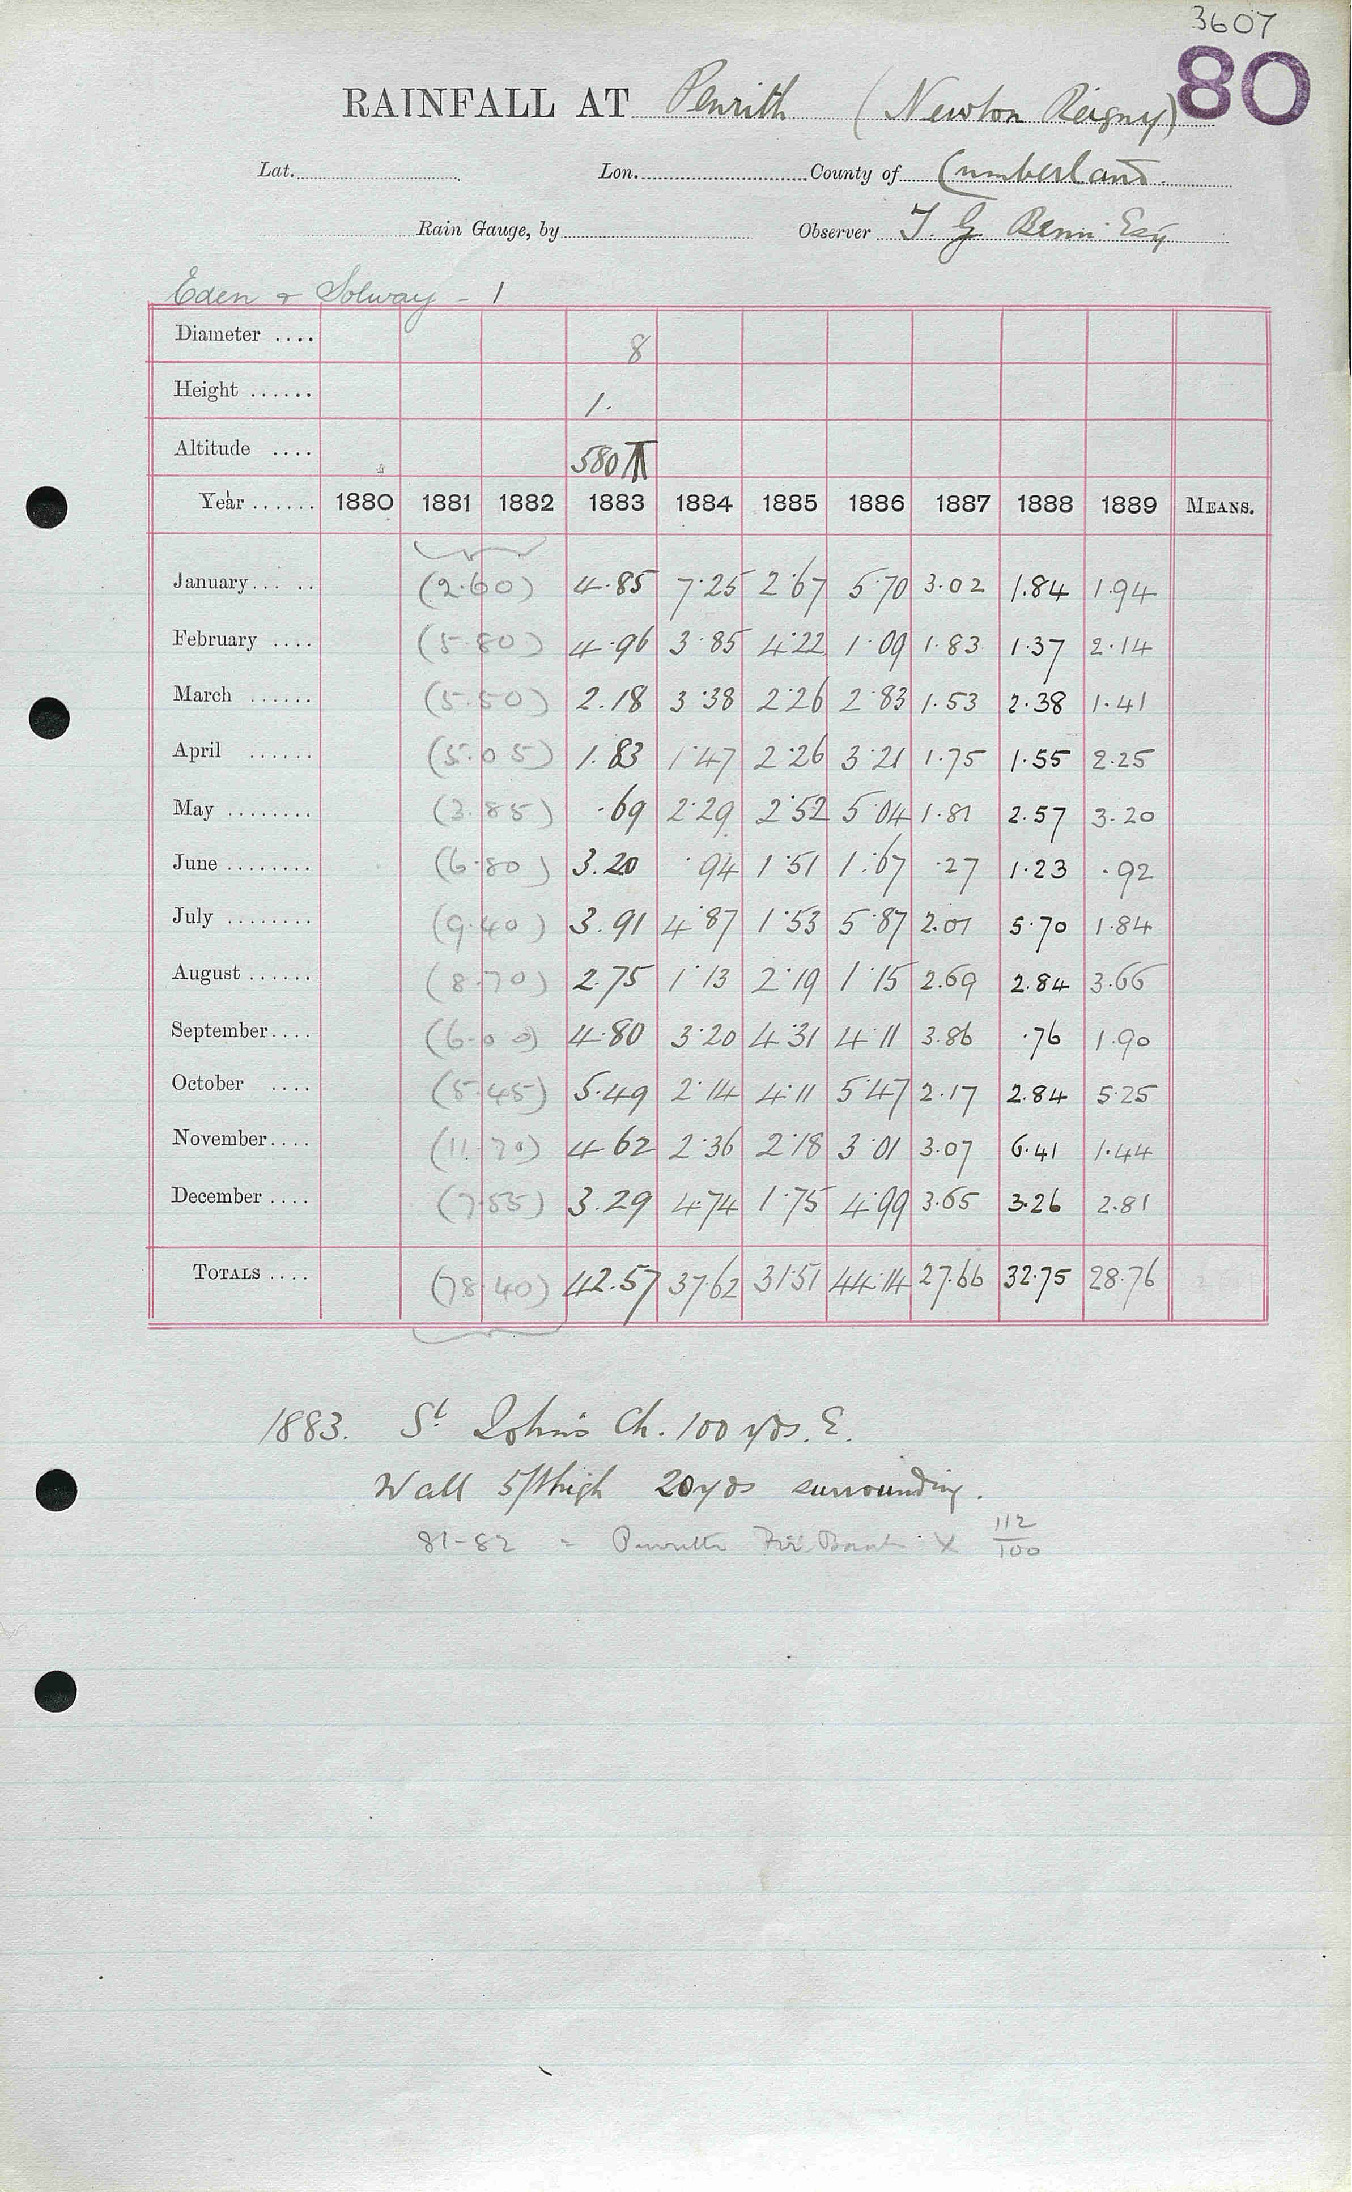 3607
80
RAINFALL AT Penrith (Newton Reigny)
Lat. Lon. County of Cumberland.
Rain Gauge, by Observer T. G. Benn Esq
Eden & Solway - 1
Diameter .... 8
Height ...... 1.
Altitude .... 580
Year ...... 1880 1881 1882 1883 1884 1885 1886 1887 1888 1889 MEANS.
January... .. (2.60) 4.85 7.25 2.67 5.70 3.02 1.84 1.94
February .... (5.80) 4.96 3.85 4.22 1.09 1.83 1.37 2.14
March ...... (5.50) 2.18 3.38 2.26 2.83 1.53 2.38 1.41
April ...... (5.05) 1.83 1.47 2.26 3.21 1.75 1.55 2.25
May ........ (3.85) .69 2.29 2.52 5.04 1.81 2.57 3.20
June ........ (6.80) 3.20 .94 1.51 1.67 .27 1.23 .92
July ........ (9.40) 3.91 4.87 1.53 5.87 2.01 5.70 1.84
August ...... (8.70) 2.75 1.13 2.19 1.15 2.69 2.84 3.66
September.... (6.00) 4.80 3.20 4.31 4.11 3.86 .76 1.90
October .... (5.45) 5.49 2.14 4.11 5.47 2.17 2.84 5.25
November.... (11.70) 4.62 2.36 2.18 3.01 3.07 6.41 1.44
December .... (7.55) 3.29 4.74 1.75 4.99 3.65 3.26 2.81
TOTALS .... (78.40) 42.57 37.62 31.51 44.14 27.66 32.75 28.76
1883. St Johns Ch. 100 yds. E.
Wall 5ft high 20 yds surrounding.
81-82 = Penrith Fir Bank × 112/100